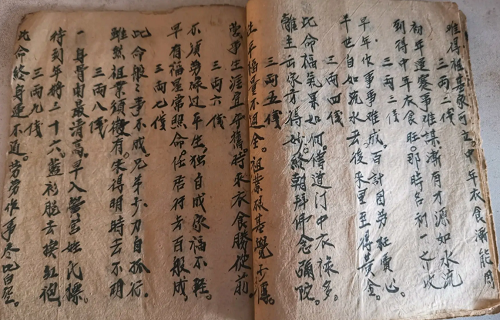 難得祖業家可立。中年衣食漸能周
三兩二伐
初年運蹇事難謀漸有才源如水流
到得中年衣食旺。那時名利一之收
三兩三伐
早年作事事難成。百計勞枉費心
半世自如流水去後來里至得黃金。
三兩四伐
此命福氣果如何。僧道门中衣祿多。
離主家方得妙。終朝拜佛念彌陀。
三兩五伐
生平福量不週全。祖業根基覺少傳。
營事生涯宜守舊時來衣食勝從前
三兩六伐
不須勞碌过平生独自成家福不輕。
早有福星常照命任君行去百般成
三兩七伐
此命般之事不成兄弟少力自孤行。
雖然祖業須微有來得明時去不明
三兩八伐
一身骨肉最清高。早入黌宮姓氏操
待到年将二十六。藍袍脫去換紅袍
三兩九伐
此命終身運不通。劳劳作事尽皆空。